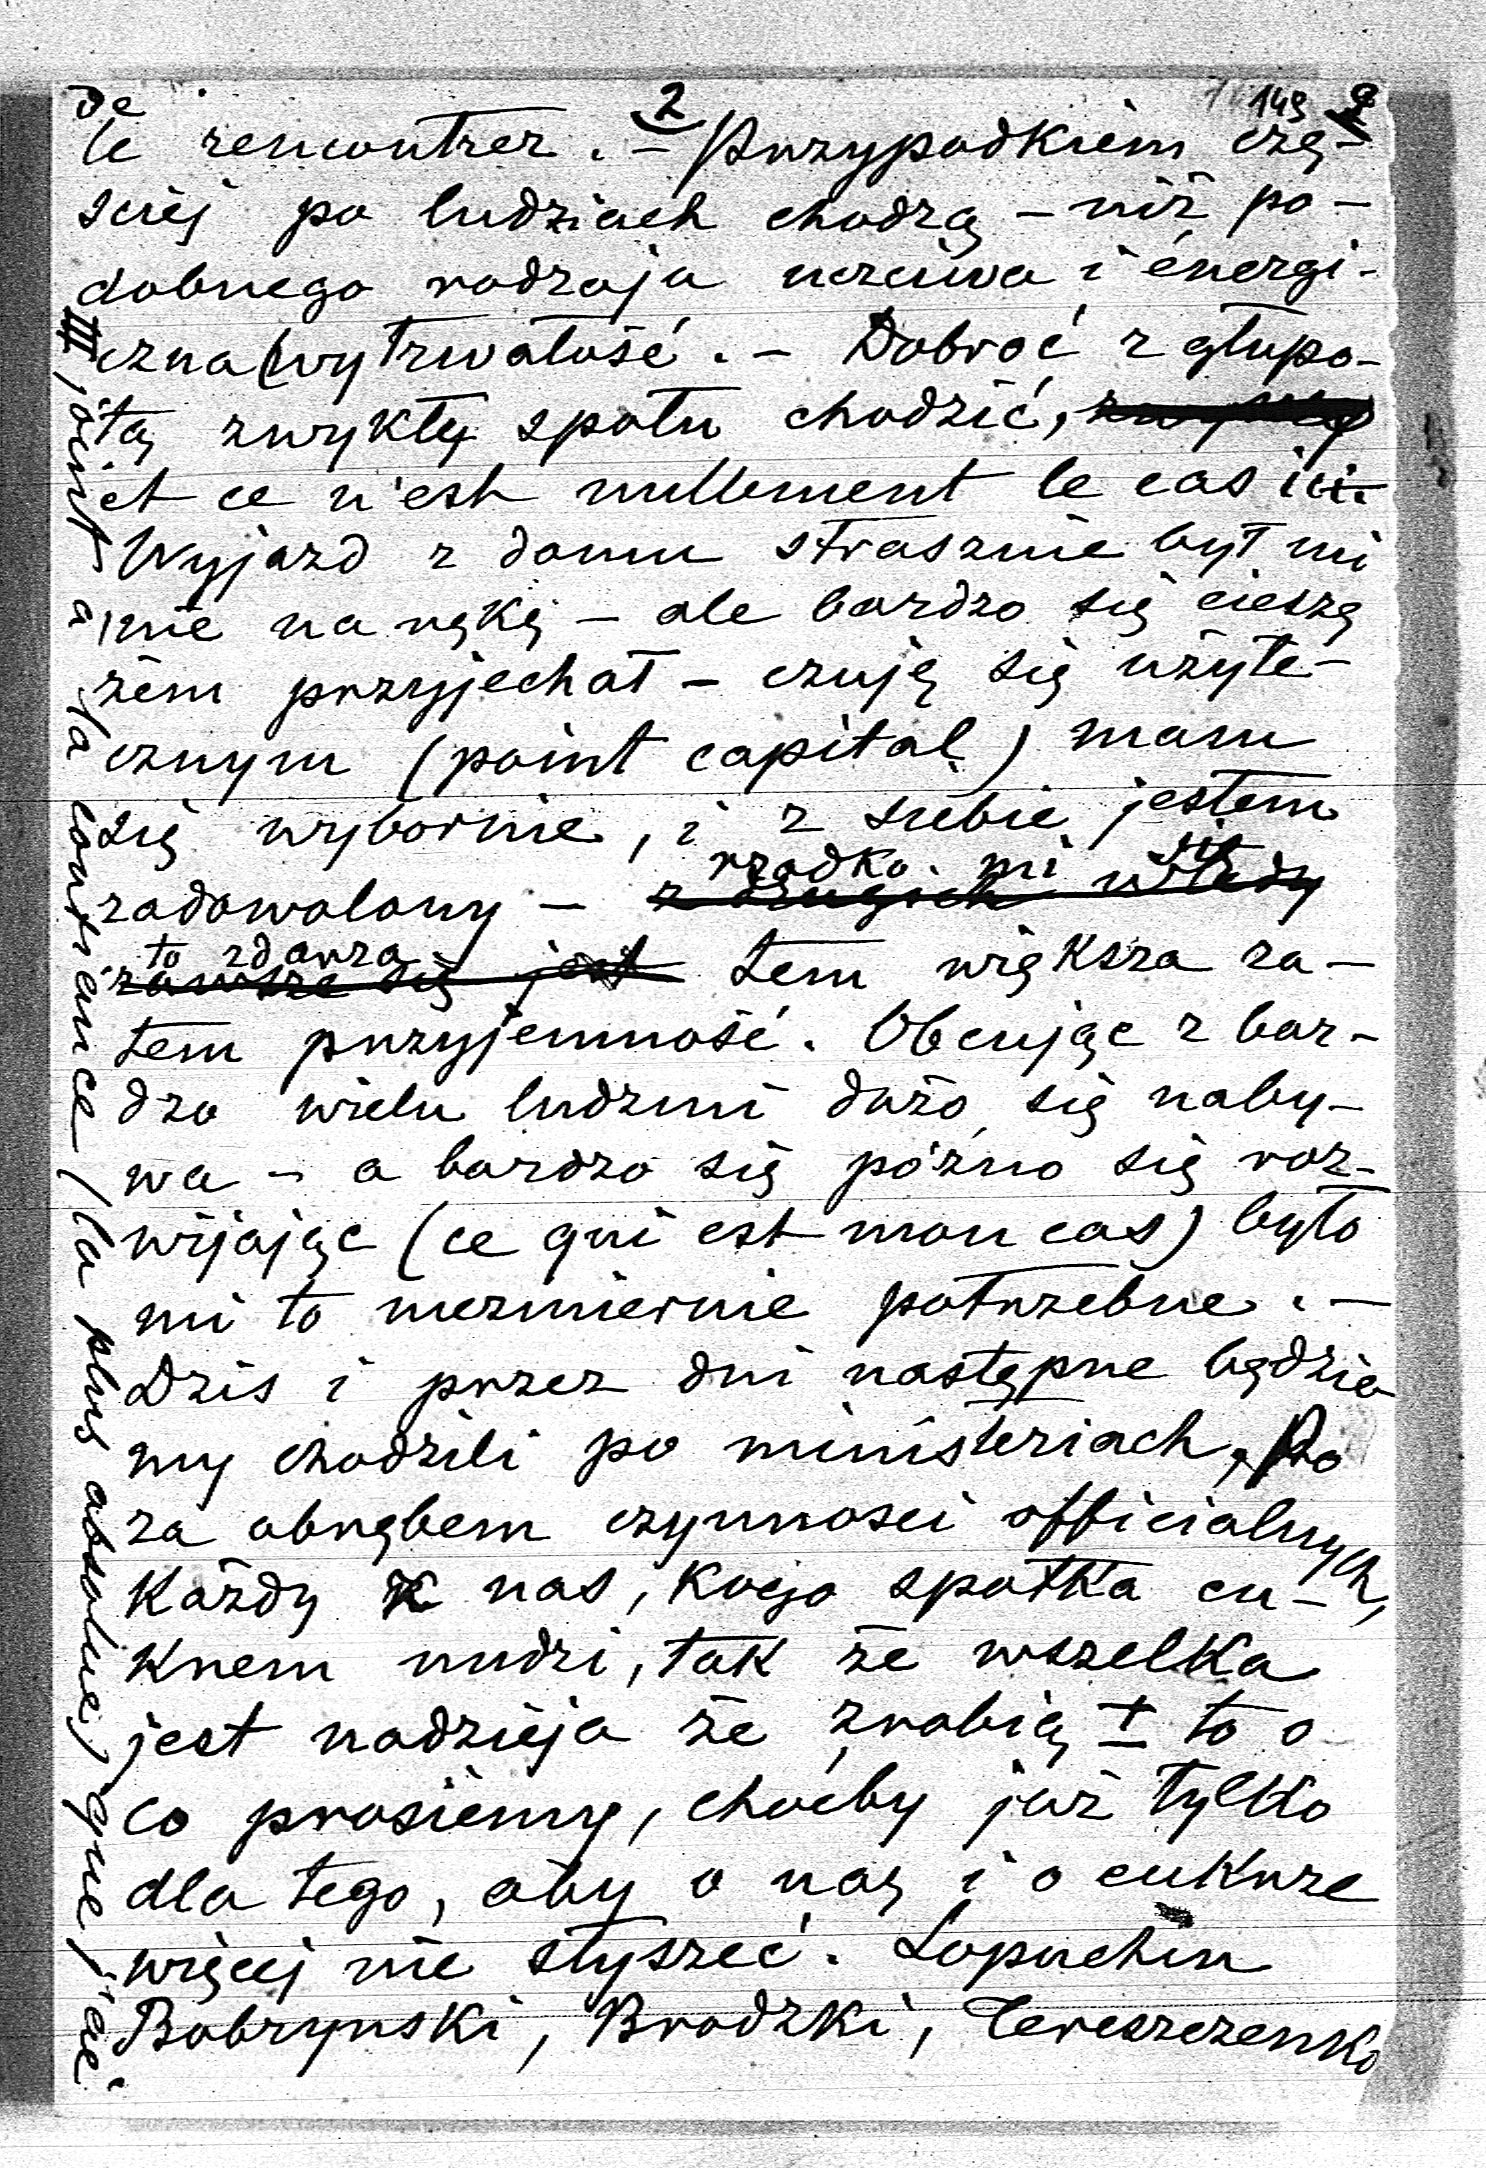 2
149
de
le rencontrer. — Przypadkiem czę-
sciej po ludziach chodzą — niż po-
dobnego rodzaju uczciwa i énergi-
czna (wytrwałość. — Dobroć z głupo-
tą zwykły społu chodzić,
et ce n'est nullement le cas ici.
Wyjazd z domu strasznie był mi
nie na rękę — ale bardzo się cieszę
żem przyjechał — czuję się użyte-
cznym (point capital) mam
się wybornie, i z siebie jestem
zadowolony — z drugich wtedy
rzadko mi się
zawsze się jest tem większa za-
to zdarza
tem przyjemność. Obcując z bar-
dzo wielu ludzmi dużo się naby-
wa — a bardzo się późno się roz-
wijając (ce qui est mon cas) było
mi to niezmiernie potrzebne. —
Dzis i przez dni następne będzie
my chodzili po ministeriach, Po
za obrębem czynnosci officialnych,
Każdy z nas, kogo spotka cu-
krem nudzi, tak że wszelka
jest nadzieja że zrobią ± to o
co prosiemy, choćby już tylko
dla tego, aby o nas i o cukrze
więcej nie słyszeć. Lopuchin
Bobrynski, Brodzki, Tereszczenko
III joint a la contenance / la plus absolue,